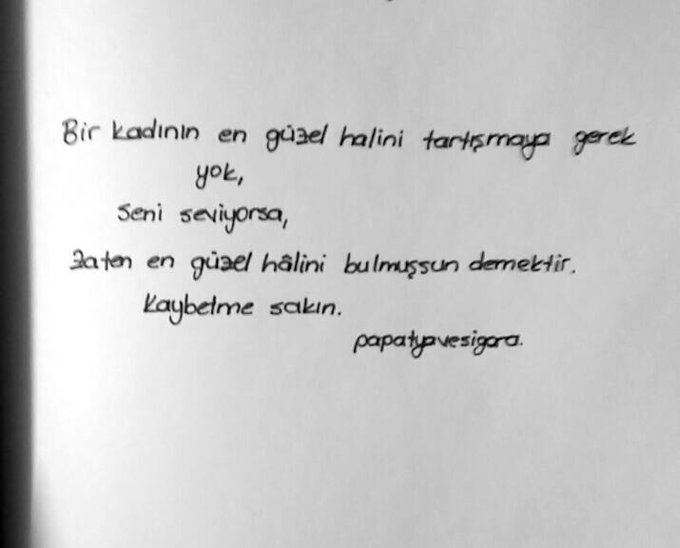 Bir kadının en güzel halini tartışmaya gerek
yok,
Seni seviyorsa,
Zaten en güzel hâlini bulmuşsun demektir.
Kaybetme sakın.
papatyavesigara.